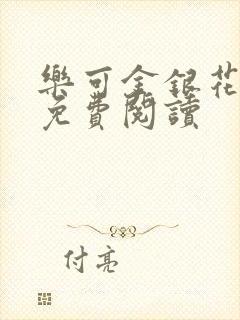 樂可金銀花
免費閱讀
付亮